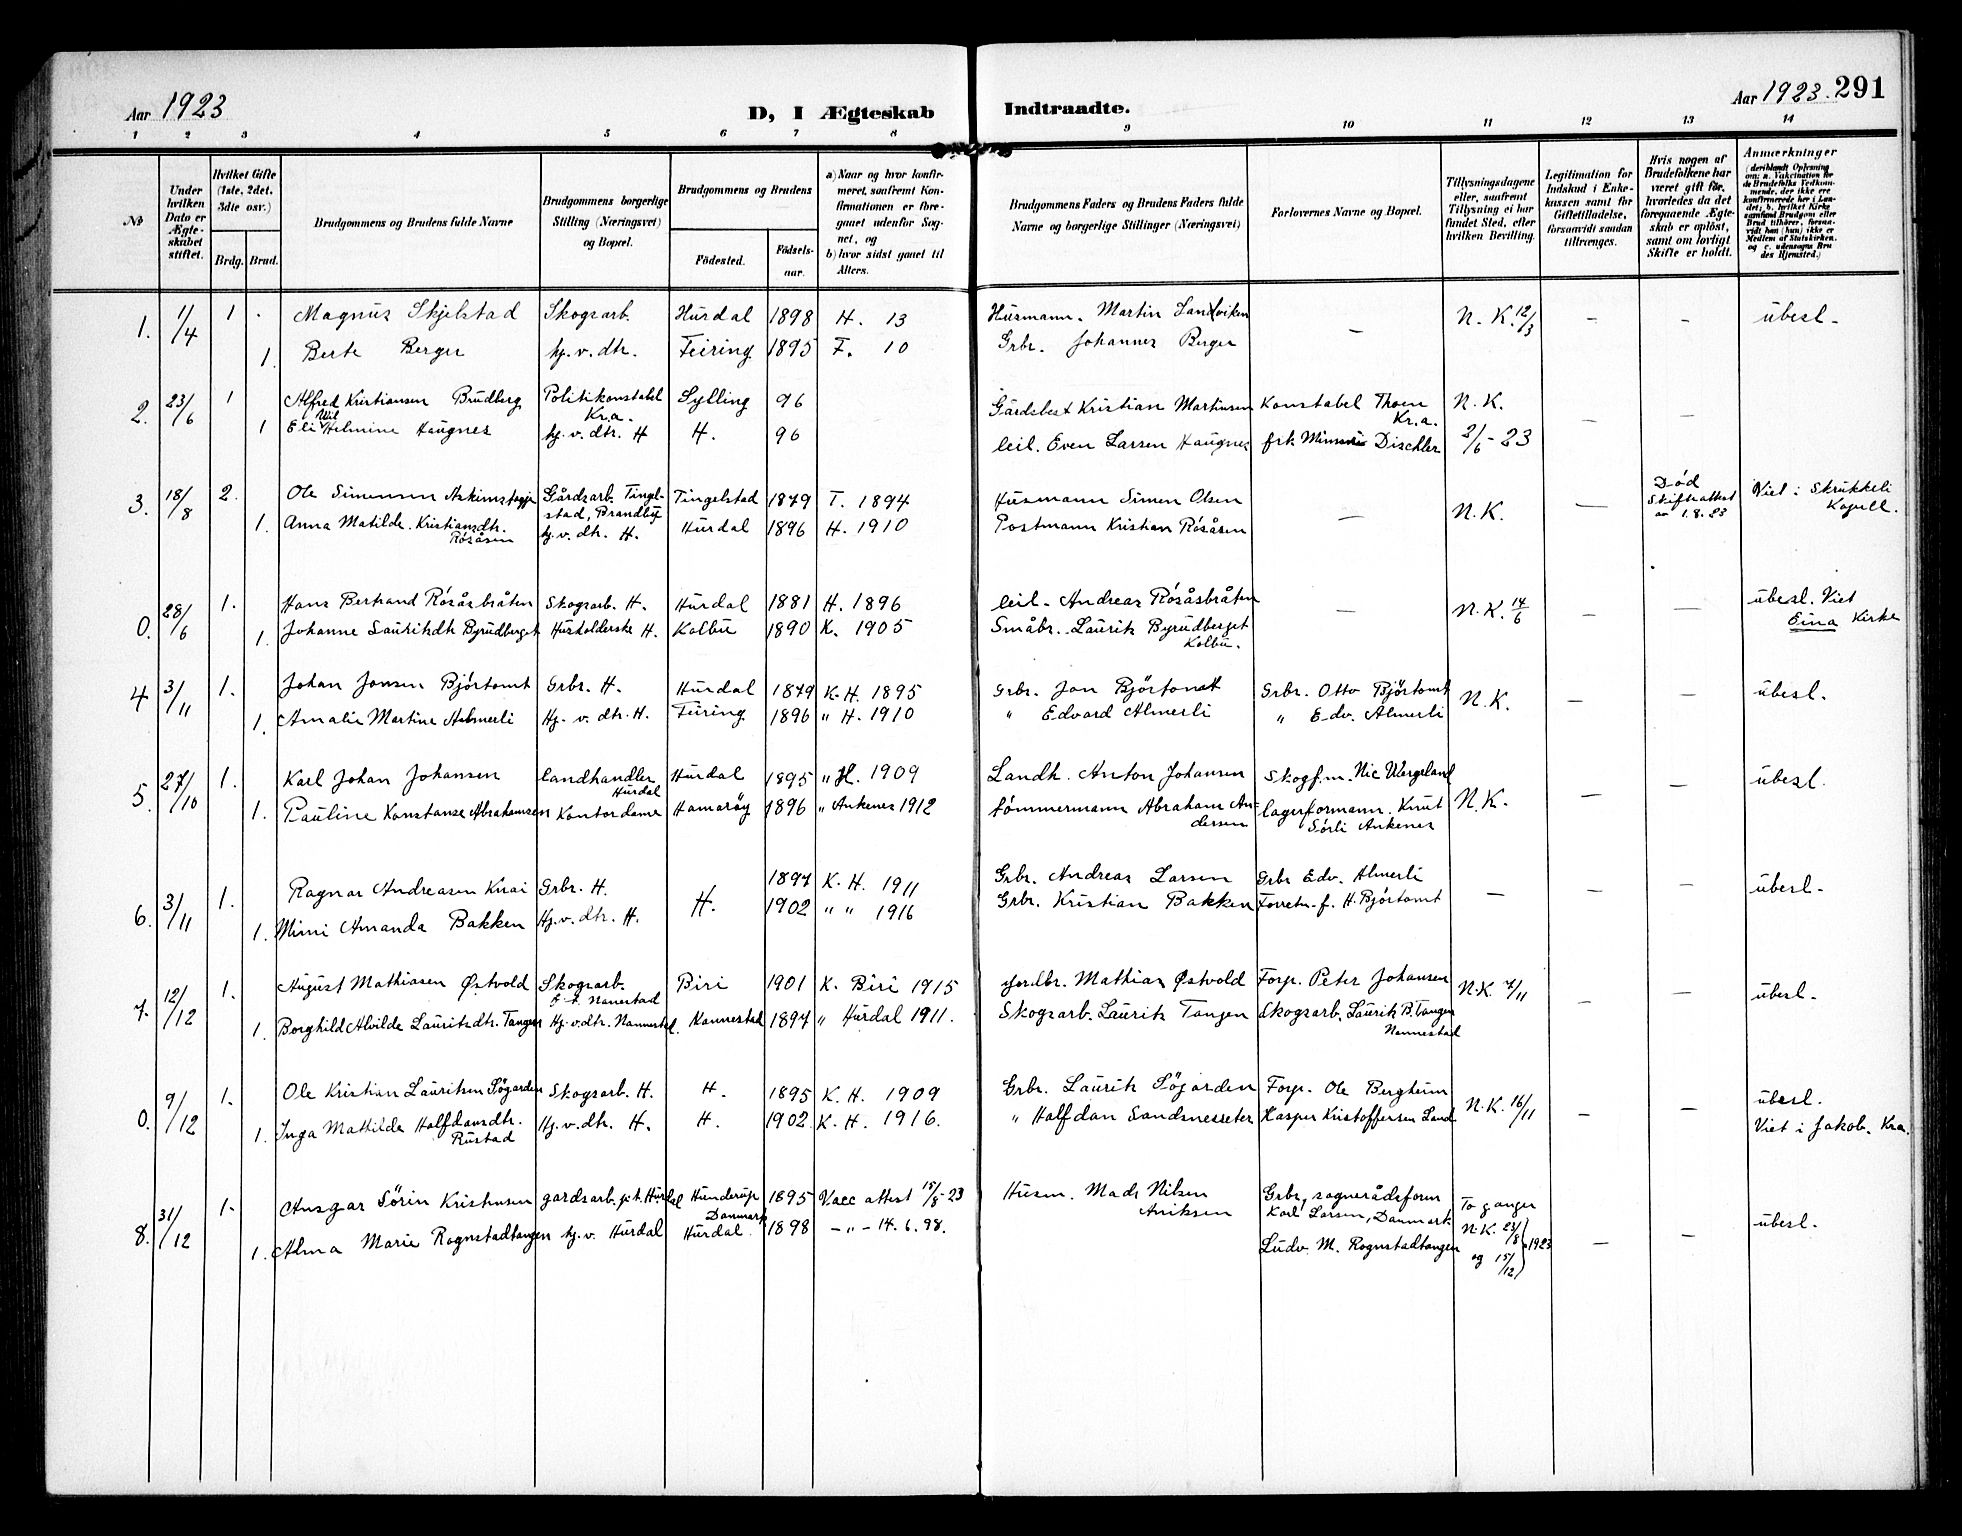 Aar 1923
D, I Ægteskab Indtraadte.
Aar 1923. 291
1 2 3 4 5 6 7 8 9 10 11 12 13 14
№
Under hvilken Dato er Ægteskabet stiftet.
Hvilket Gifte (1ste, 2det, 3die osv.)
Brdg. Brud.
Brudgommens og Brudens fulde Navne
Brudgommens borgerlige Stilling (Næringsvei) og Bopæl.
Brudgommens og Brudens
Fødested. Fødselsaar.
a) Naar og hvor konfirmeret, samfremt Konfirmationen er foregaaet udenfor Sognet, og
b) hvor sidst gaaet til Alters.
Brudgommens Faders og Brudens Faders fulde Navne og borgerlige Stillinger (Næringsvei)
Forlovernes Navne og Bopæl.
Tillysningsdagene eller, saafremt Tillysning ei har fundet Sted, efter hvilken Bevilling.
Legitimation for Indskud i Enkekassen samt for Giftetilladelse, forsaavidt saadan tiltrænges.
Hvis nogen af Brudefolkene har været gift før, hvorledes da det foregaaende Ægteskab er opløst, samt om lovligt Skifte er holdt.
Anmærkninger
1. 1/4 1 . Magnus Skjelstad Skogsarb. Hurdal 1898 H. 13 Husmann. Martin Landviken — N. K. 12/3 — — ubesl.
1. Berte Berger hj. v. dtr. Feiring 1895 F. 10 Grbr. Johannes Berger
2. 23/6 1 Alfred Kristiansen Brudberg Politikonstabel Kr.a. Sylling 96 Gårdsbest Kristian Martinsen Konstabel Thoen Kr.a. N. K. — —
1 Eli Wilhelmine Haugnes hj. v. dtr. H H. 96 leil. Even Larsen Haugnes frk Dischler 2/6 - 23
3. 18/8 2. Ole Simensen Gårdsarb. Tingelstad, Brandbu Tingelstad 1879 T. 1894 Husmann Simen Olsen — N. K. — Død Skifteattest av 1.8.23 Viet i Skrukkeli Kapell.
1. Anna Matilde Kristiansdtr. Røsåsen hj. v. dtr. H. Hurdal 1896 H. 1910 Postmann Kristian Røsåsen
0. 28/6 1. Hans Bertrand Røsåsbråten Skogsarb. H. Hurdal 1881 H. 1896 leil. Andreas Røsåsbråten — N. K. 14/6 — — ubesl. Viet Eina Kirke
1. Johanne Lauritzdtr Byrudberget Husholderske H. Kolbu 1890 K. 1905 Småbr. Lauritz Byrudberget Kolbu.
4 3/11 1. Johan Jonsen Bjørtomt Grbr. H. Hurdal 1879 K. H. 1895 Grbr. Jon Bjørtomt Grbr. Otto Bjørtomt N. K. — — ubesl.
1. Amalie Martine Almerli Hj. v. dtr. H. Feiring 1896 " H. 1910 " Edvard Almerli " Edv. Almerli
5. 27/10 1. Karl Johan Johansen landhandler Hurdal Hurdal 1895 " H. 1909 Landh. Anton Johansen Skogf.m. Nic Wergeland N. K. — — ubesl.
1. Pauline Konstanse Abrahamsen Kontordame Hamarøy 1896 " Ankenes 1912 tømmermann Abraham Andersen lagerformann. Knut Sørli Ankenes
6. 3/11 1. Ragnar Andreasen Knai Grbr. H. H. 1897 K. H. 1911 Grbr. Andreas Larsen Grbr Edv. Almerli — — — ubesl.
1. Mimi Amanda Bakken Hj. v. dtr. H. 1902 " " 1916 Grbr. Kristian Bakken Forretn.f. H. Bjørtomt
7. 12/12 1. August Mathiasen Østvold Skogsarb. p. t. Nanestad Biri 1901 K. Biri 1915 Jordbr. Mathias Østvold Forp. Peter Johansen N. K. 7/11 — — ubesl.
1. Borghild Alvilde Lauritsdtr. Tangen Hj. v. dtr. Nannestad. Nannestad 1897 " Hurdal 1911. Skogsarb. Laurits Tangen Skogsarb. Laurits B. Tangen Nannestad
0. 9/12 1. Ole Kristian Lauritsen Søgarden Skogsarb. H. H. 1895 K. H. 1909 Grbr. Laurits Søgarden Forp. Ole Bergheim N. K. 16/11 — — ubesl. Viet i Jakob. Kra.
1. Inga Mathilde Halfdansdtr. Rustad Hj. v. dtr. H. H. 1902 K. H. 1916. " Halfdan Sandsnesseter Kasper Kristoffersen Land
8. 31/12 1. Ansgar Sørin Kristensen gardsarb. p.t. Hurdal Hunderup Danmark 1895 Vacc attest 15/8 23 Husm. Mads Nilsen Grbr, sognerådsform Karl Larsen, Danmark To ganger N. K. 23/8 og 15/12 } 1923 — — ubesl.
1. Alma Marie Rognstadtangen hj. v. Hurdal Hurdal. 1898 — " — 14. 6. 98. Ludv. M. Rognstadtangen